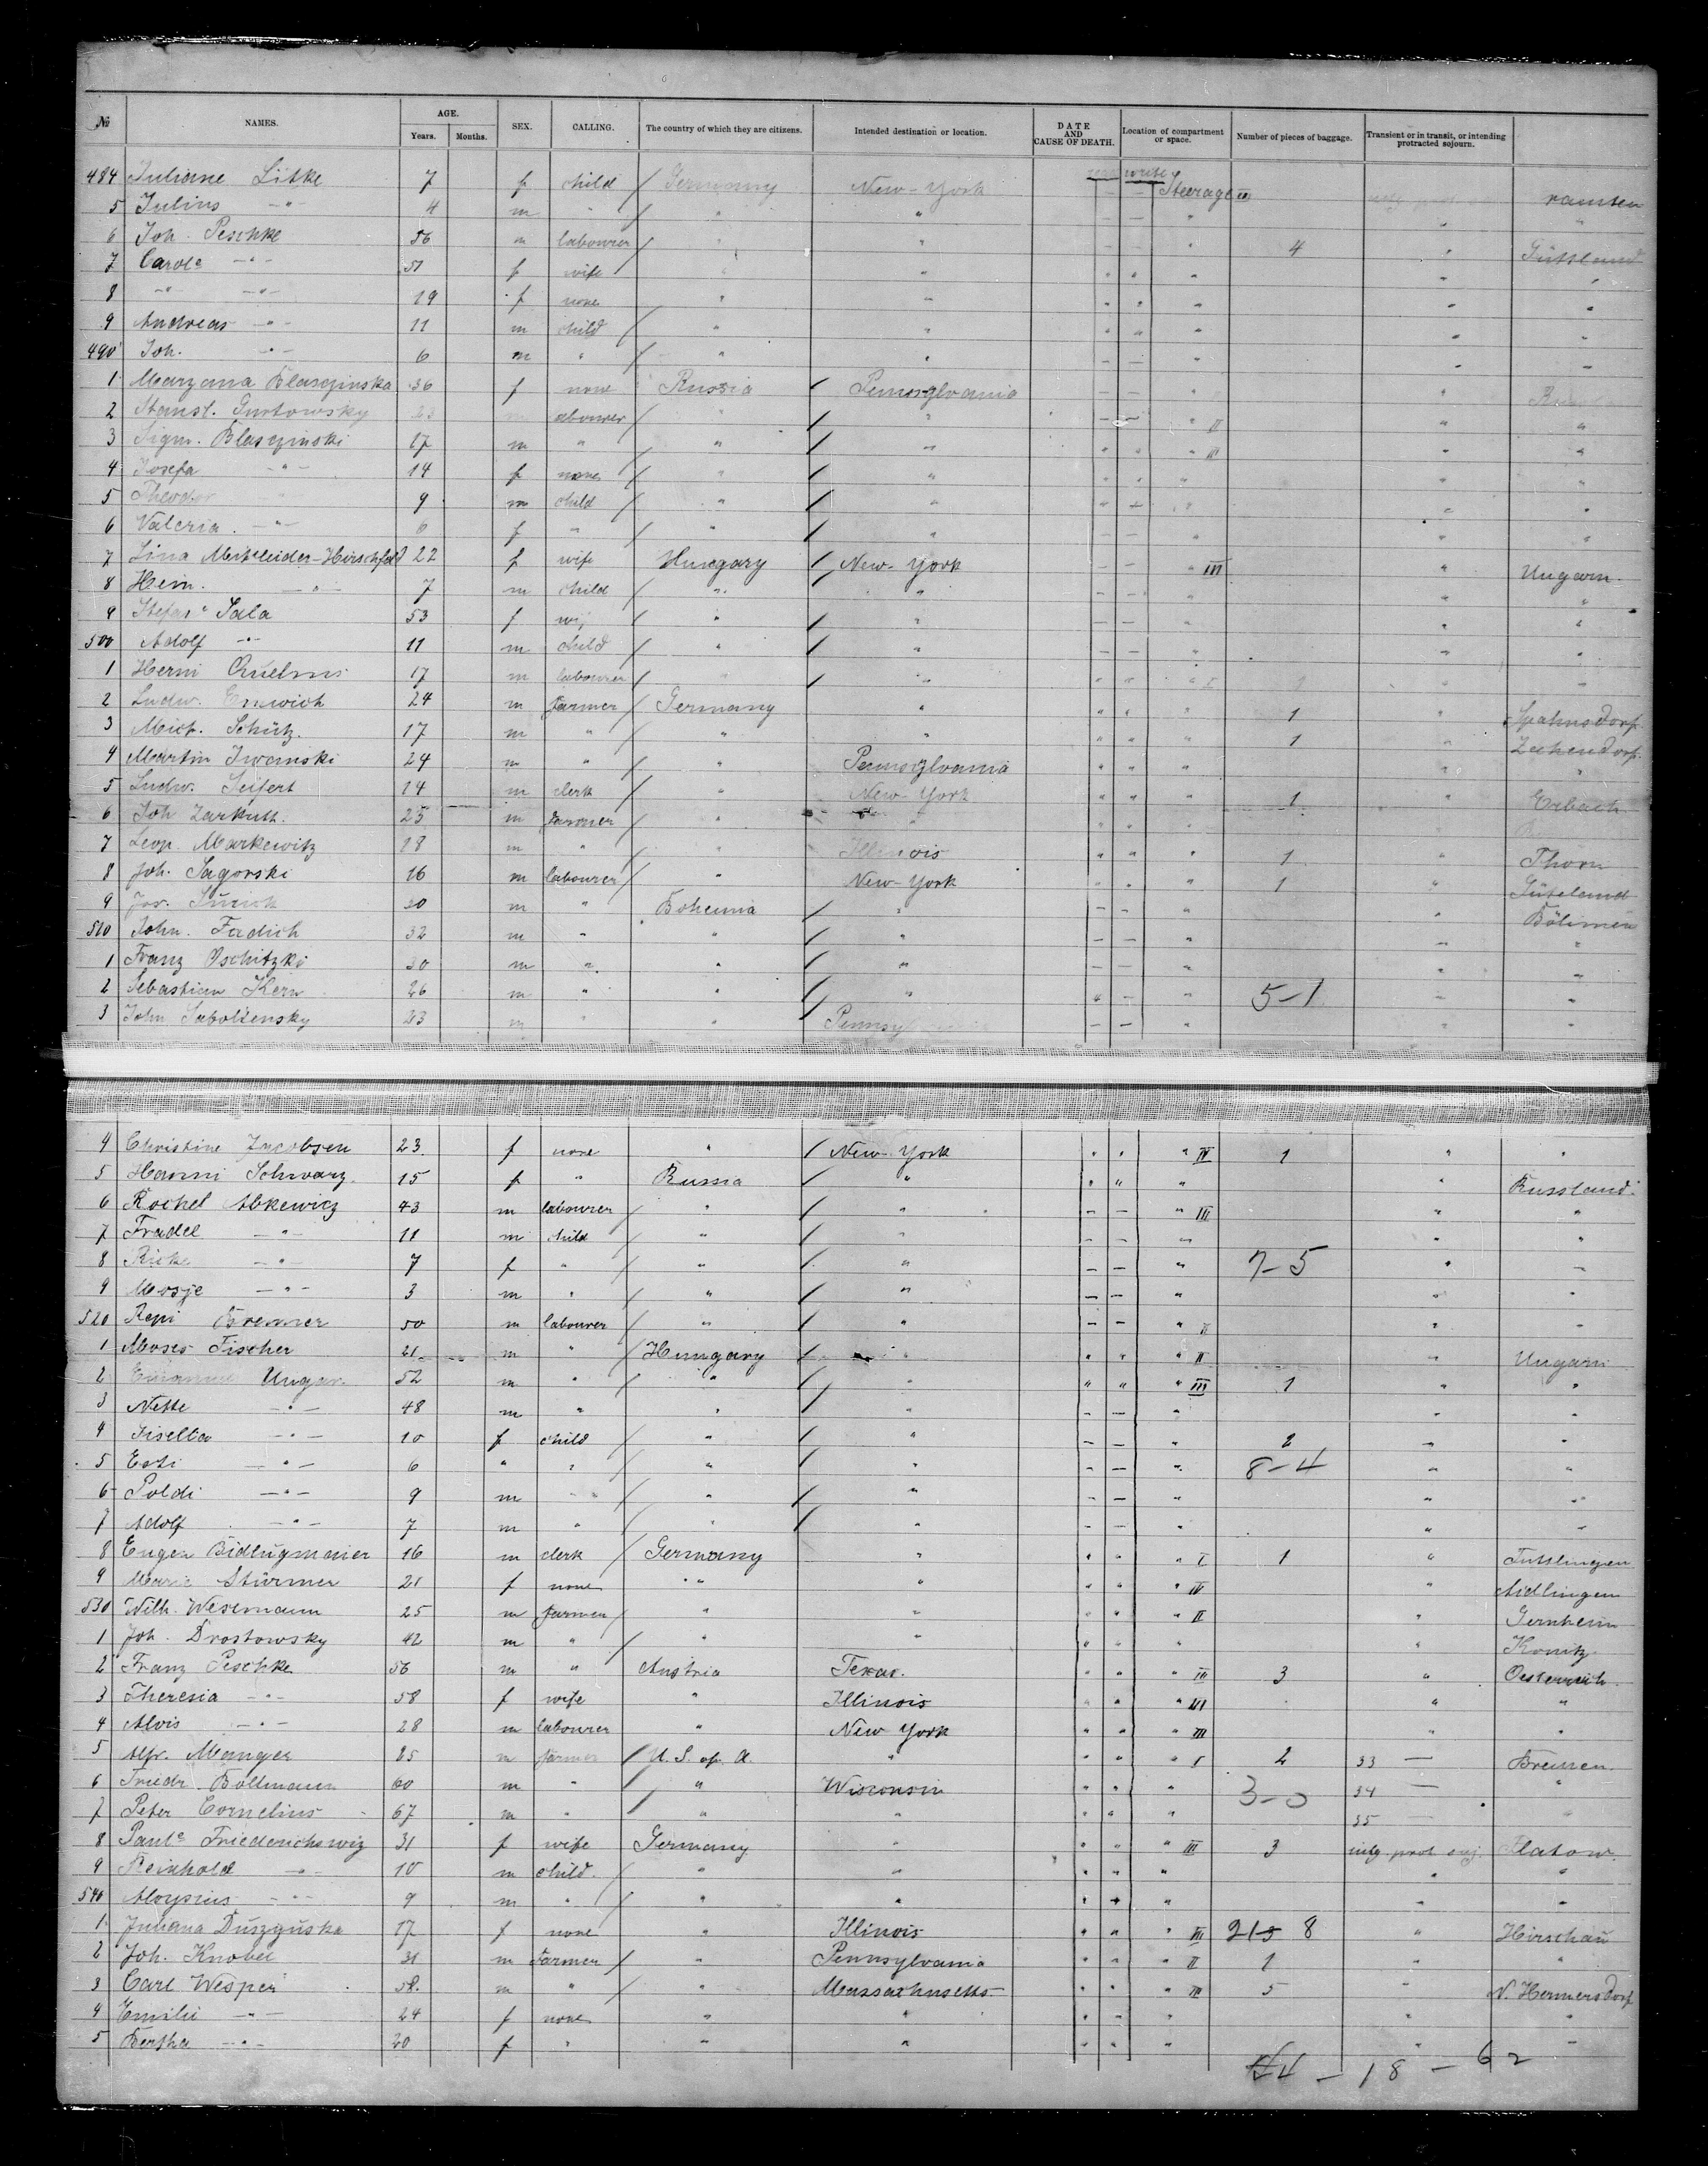 № NAMES. AGE. Years. Months. SEX. CALLING. The country of which they are citizens. Intended destination or location. DATE AND CAUSE OF DEATH. Location of compartment or space. Number of pieces of baggage. Transient or in transit, or intending protracted sojourn.
read write
484 Juliane Litke 7 f child Germany New-York — — Steerage
5 Julius —"— 4 m " " " — — " "
6 Joh. Peschke 56 m labourer / " " — — " 4 " Güttland
7 Carole —"— 51 f wife " " " " " " "
8 —"— —"— 19 f none " " " " " " "
9 Andreas —"— 11 m child / " " " " " " "
490 Joh. —"— 6 m " / " " — — " " "
1 Maryanna Blasczinska 36 f none Russia / Pennsylvania — — " "
2 Stanisl. Gurtowsky 23 m labourer " / " — — " II " "
3 Sigm. Blasczinski 17 m " / " / " " " " III " "
4 Josefa —"— 14 f none / " / " " " " " "
5 Theodor " 9 m child / " / " " " " " "
6 Valeria —"— 6 f " / " / " — — " " "
7 Lina Mitleider-Hirschfeld 22 f wife Hungary / New-York — — " III " Ungarn.
8 Hein. —"— 7 m child / " / " — — " " "
9 Stefan Sala 53 f / " / " — — " " "
500 Adolf —"— 11 m child / " / " — — " " "
1 Herm 17 m labourer / " / " " " " I 1 " "
2 Ludw. Emwich 24 m farmer / Germany " " " " 1 " Spahnsdorf
3 Mich. Schütz. 17 m " / " " " " " 1 " Zechendorf
4 Martin Iwanski 24 m " / " Pennsylvania " " " " "
5 Ludw. Seifert 14 m clerk / " New York " " " 1 " Erbach
6 Joh Zarkuth. 25 m farmer / " " " " "
7 Leop. Markewitz 18 m " / " Illinois " " " 1 " Thorn
8 Joh. Sagorski 16 m labourer / " New-York " " " 1 " Güteland
9 Jos. 30 m " Bohemia / " — — " " Böhmen
510 John. Fadich 32 m " " / " — — " " "
1 Franz Oschitzki 30 m " " / " — — " " "
2 Sebastian Kern 26 m " " / " " — " 5-1 " "
3 John Sabolsensky 23 m " " / Pennsylvania — — " " "
4 Christine Jacobsen 23. f none " / New-York " " " IV 1 " "
5 Hanni Schwarz. 15 f " Russia / " " " " " Russland.
6 Rochel Abkewicz 43 m labourer / " / " — — " III " "
7 Fradel —"— 11 m child / " / " — — " " "
8 —"— 7 f " / " / " — — " 7-5 " "
9 Mosje —"— 3 m " / " / " — — " " "
520 Repi Bremer 50 m labourer / " / " — — " II " "
1 Moses Fischer 21 m " / Hungary / " " " " II " Ungarn
2 Emanuel Ungar. 52 m " / " / " " " " III 1 " "
3 Nette —"— 48 m " " / " — — " " "
4 Gisella —"— 10 f child / " / " — — " 2 " "
5 Esti —"— 6 " " / " / " — — " 8-4 " "
6 Poldi —"— 9 m " / " / " — — " " "
7 Adolf —"— 7 m " / " / " — — " " "
8 Eugen Bidlugmaier 16 m clerk / Germany " " " " I 1 " Tuttlingen
9 Marie Stürmer 21 f none " " " " " IV " Aidlingen
530 Wilh. Wesemann 25 m farmer / " " " " " II " Gernheim
1 Joh. Drostowsky 42 m " / " " " " " " Konitz.
2 Franz Peschke 56 m " Austria Texas. " " " III 3 " Oesterreich.
3 Theresia —"— 58 f wife " Illinois " " " III " "
4 Alois —"— 28 m labourer " New York " " " III " "
5 Alfr. Manger 25 m farmer / U. S. of A. " " " " I 2 33 — Bremen.
6 Friedr. Bollmann 60 m " / " Wisconsin " " " 3-0 34 — "
7 Peter Cornelius 67 m " / " " " " " 35 — "
8 Paule Friederichowiz 31 f wife Germany " " " " III 3 intg prot soj. Flatow.
9 Reinhold —"— 10 m child. / " " " " " " "
540 Aloysius —"— 9 m " / " " " " " " "
1 Juliana Duszynska 17 f none " Illinois " " " III 8 " Hirschau
2 Joh. Knobel 31 m Farmer / " Pennsylvania " " " II 1 " "
3 Carl Wesper 58. m " / " Massachusetts " " " III 5 " N. Hermersdorf
4 Emilie —"— 24 f none " " " " " " "
5 Bertha —"— 20 f " " " " " " " "
44 — 18 — 62